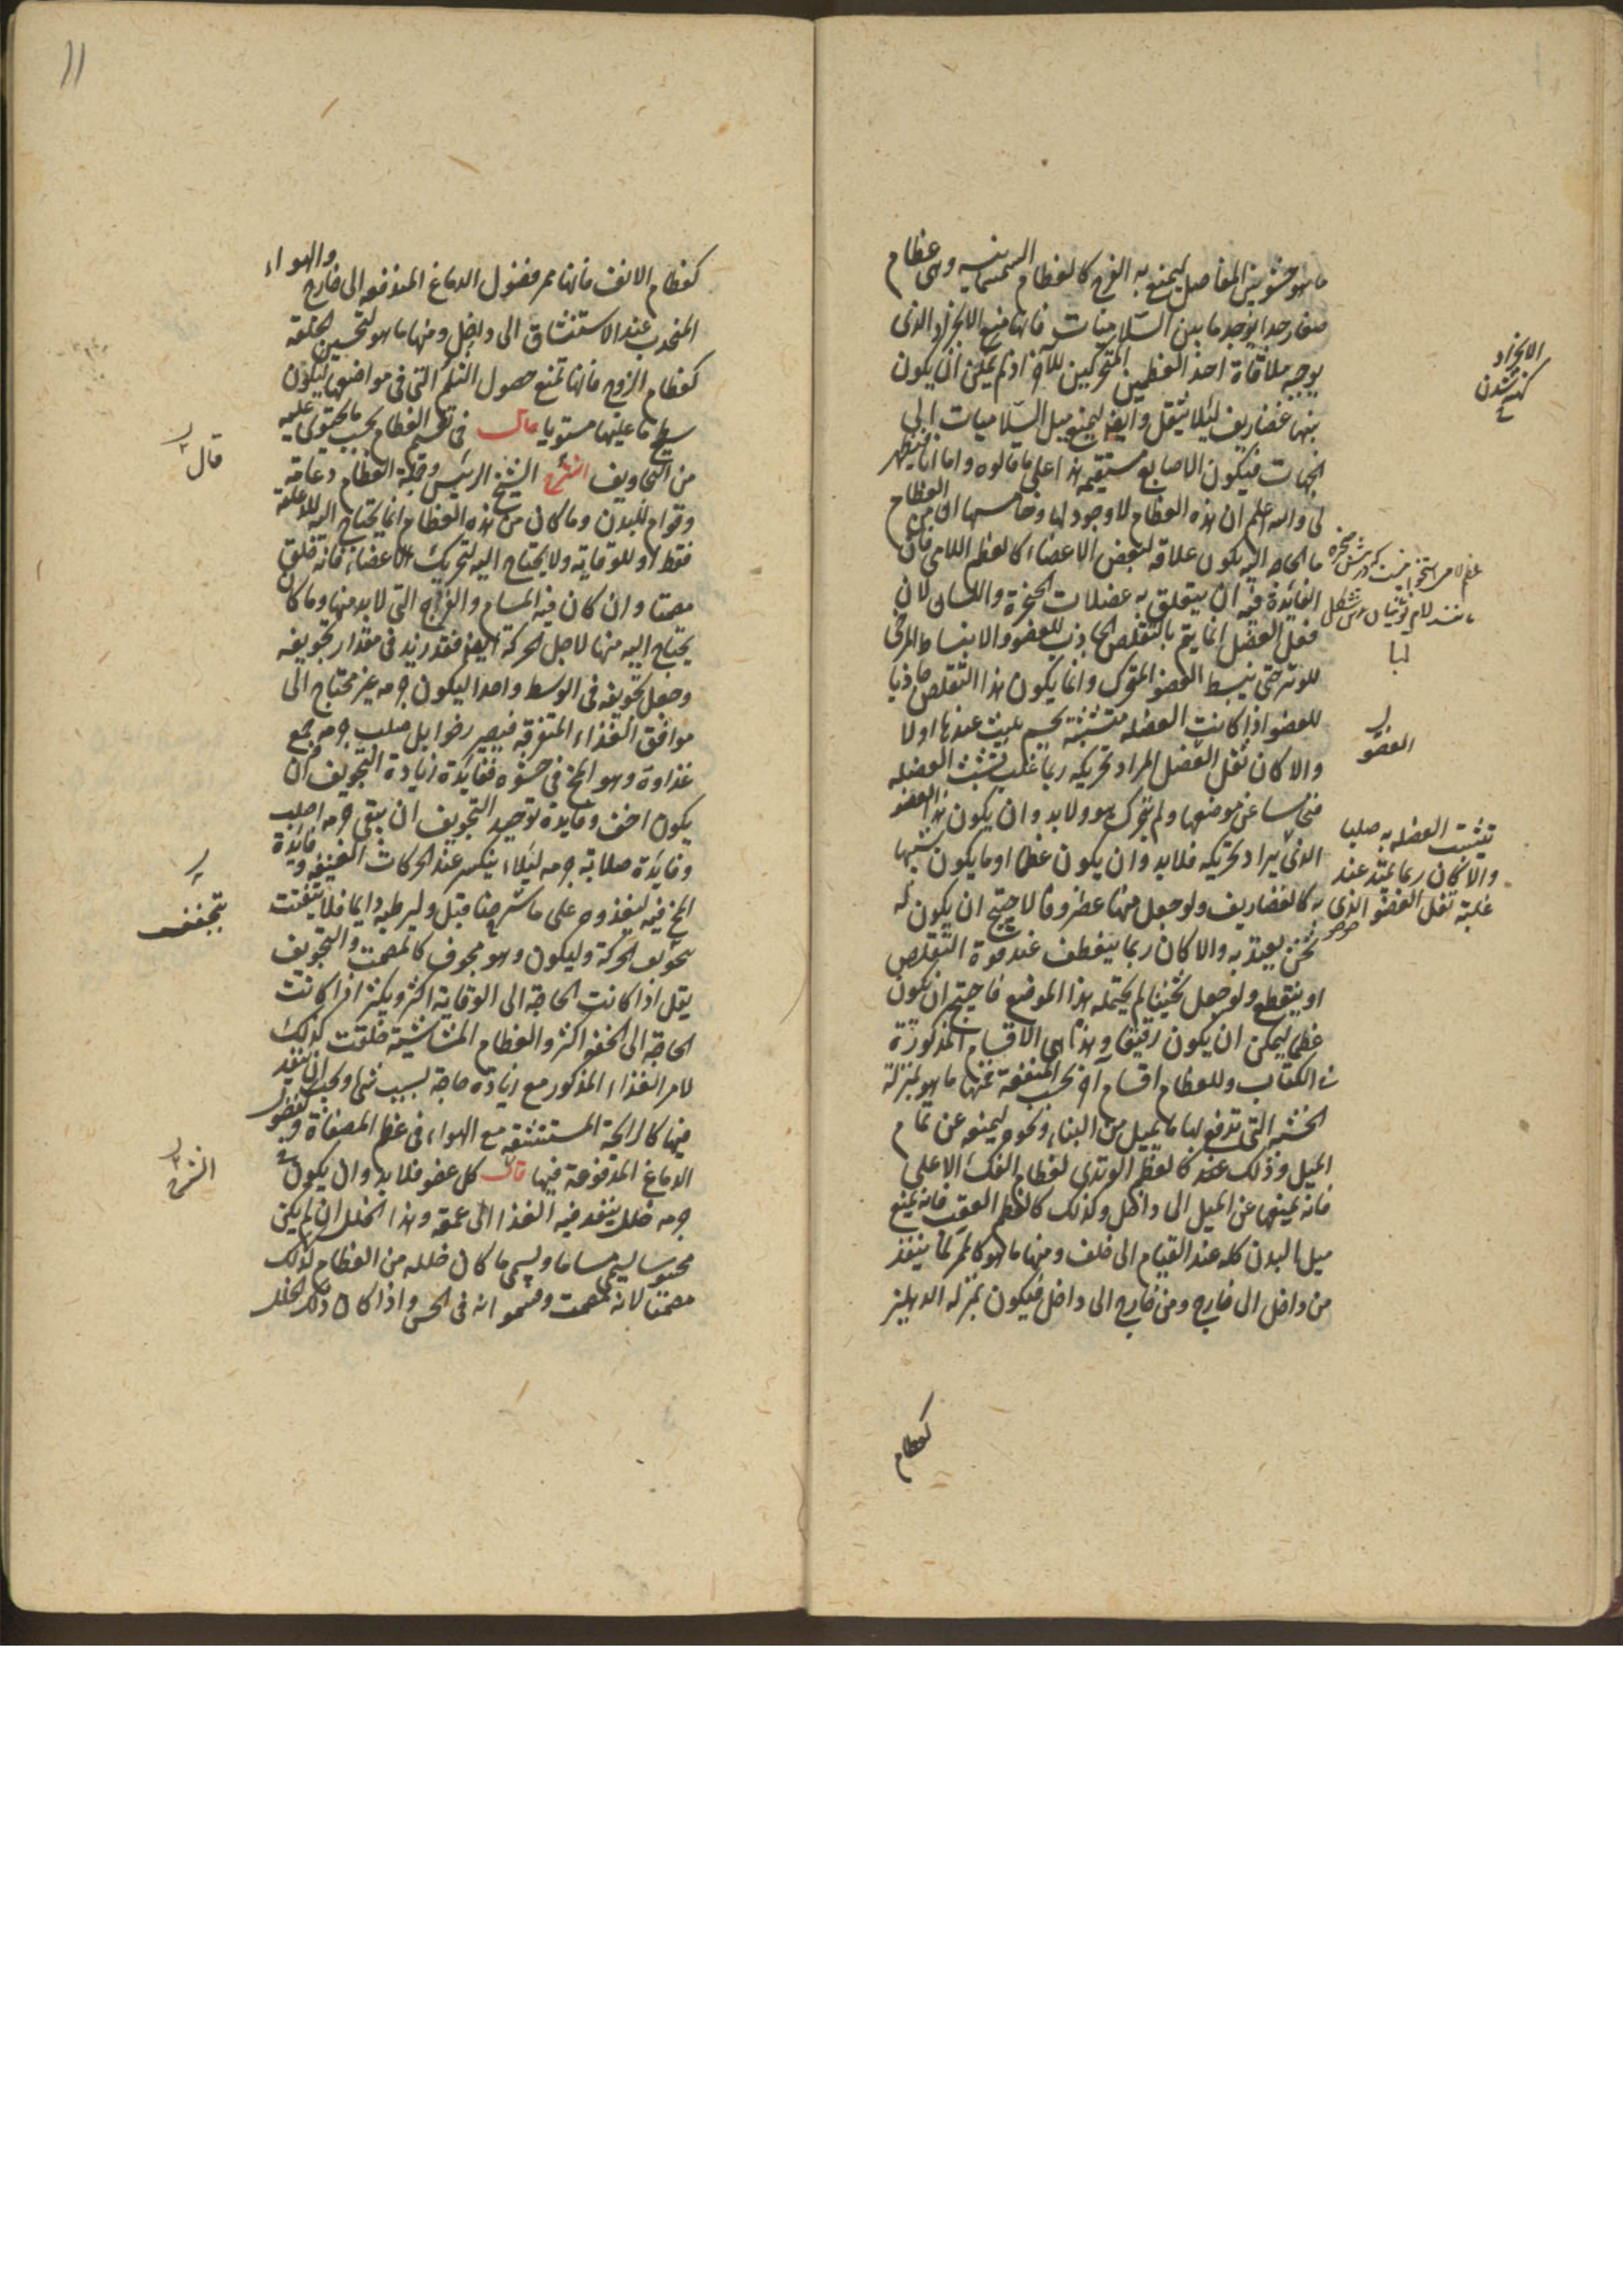 ما هو حشو بين المفاصل ليمنع به الفرج كالعظام السمسمانيه وهى عظام
صغار جدا يوجد ما بين السلاميات فانها تمنع الانجراد الذى
يوجبه ملاقاة احد العظمين المتحركين للآخر اذ لم يمكن ان يكون
بينها غضاريف لئلا يثقل وايضا ليمنع ميل السلاميات الى
الجهات فيكون الاصابع مستقيمة هذا على ما قالوه واما انا فيظهر
لى والله اعلم ان هذه العظام لا وجود لها وخامسها ان من العظام
ما الحاجه اليه يكون علاقه لبعض الاعضاء كالعظم اللامى فان
الفائدة فيه ان يتعلق به عضلات الحنجرة واللسان لان
فعل العضل انما يتم بالتقلص الجاذب للعضو والانبساط المرخى
للوتر حتى ينبسط العضو المتحرك وانما يكون هذا التقلص جاذبا
للعضو اذا كانت العضله متشبثة بجسم يثبت عندها اولا
والا كان ثقل العضل المراد تحريكه ربما غلب تشبث العضله
فنحى ساعن موضعها ولم يتحرك هو ولا بد وان يكون هذا العضو
الذى يراد تحريكه فلا بد وان يكون عظما او ما يكون شبيها
به كالغضاريف ولو جعل منها غضروفا لاحتيج ان يكون له
ثخن يعتد به والا كان ربما ينعطف عند قوة التقلص
او ينقطع ولو جعل ثخينا لم يحتمله هذا الموضع فاحتيج ان يكون
عظما ليمكن ان يكون رقيقا وهذا هى الاقسام المذكورة
فى الكتاب وللعظام اقسام اخر بحسب المنفعة فمنها ما هو بمنزلة
الخشبه التى تدفع لها ما يميل من البناء ونحوه ليمنعه عن تمام
الميل وذلك عند كالعظم الوتدى لعظام الفك الاعلى
فانه يمنعها عن الميل الى داخل وكذلك كالعظم العقب فانه يمنع
ميل البدن كله عند القيام الى خلف ومنها ما هو كالممر لما ينفذ
من داخل الى خارج ومن خارج الى داخل فيكون بمنزله الدهليز
كعظام
الانجراد
كنده شدن
العضو
تشبثت العضله به صلبا
والا كان ربما يمتد عند
غلبة ثقل العضو الذى
11
كعظام الانف فانها ممر فضول الدماغ المندفعه الى خارج والهواء
المنجذب عند الاستنشاق الى داخل ومنها ما هو لتحسين الخلقه
كعظام الزوج فانها تمنع حصول الثلم التى فى مواضعها ليكون
سطح ما عليها مستويا قال فى تقسيم العظام بحسب ما يحتوى عليه
من التجاويف الشرح الشيخ الرئيس وجملة العظام دعامة
وقوام للبدن وما كان من هذه العظام انما يحتاج اليه للدعامة
فقط او للوقاية ولا يحتاج اليه لتحريك الاعضاء فانه خلق
مصمتا وان كان فيه المسام والفرج التى لا بد منها وما كان
يحتاج اليه منها لاجل الحركة ايضا فقد زيد فى مقدار تجويفه
وجعل تجويفه فى الوسط واحدا ليكون جرمه غير محتاج الى
مواقف الغذاء المتفرقه فيصير رخوا بل صلب جرمه وجمع
غذاوه وهو المخ فى حشوه ففايدة زيادة التجويف ان
يكون اخف وفايدة توحيد التجويف ان يبقى جرمه اصلب
وفايدة صلابة جرمه ليلا ينكسر عند الحركات العنيفه وفايدة
المخ فيه ليغذوه على ما شرحنا قبل وليرطبه دايما فلا يتفتت
بتجويف الحركة وليكون وهو مجوف كالمصمت والتجويف
يقل اذا كانت الحاجة الى الوقاية اكثر ويكثر اذا كانت
الحاجة الى الخفه اكثر والعظام المشاشية خلقت كذلك
لامر الغذاء المذكور مع زيادة حاجة بسبب شى يجب ان ينفذ
فيها كالرائحة المستنشقه مع الهواء فى عظم المصفاة ولفضول
الدماغ المدفوعة فيها قال كل عضو فلا بد وان يكون فى
جرمه خلل ينفذ فيه الغذا الى عمقه وهذا الخلل ان لم يكن
محسوسا ليسمى مساما ويسمى ما كان خلله من العظام كذلك
مصمتا لانه مصمت وقسموا انه فى الحس واذا كان ذلك الخلل
قال
بتجفيف
الشرح